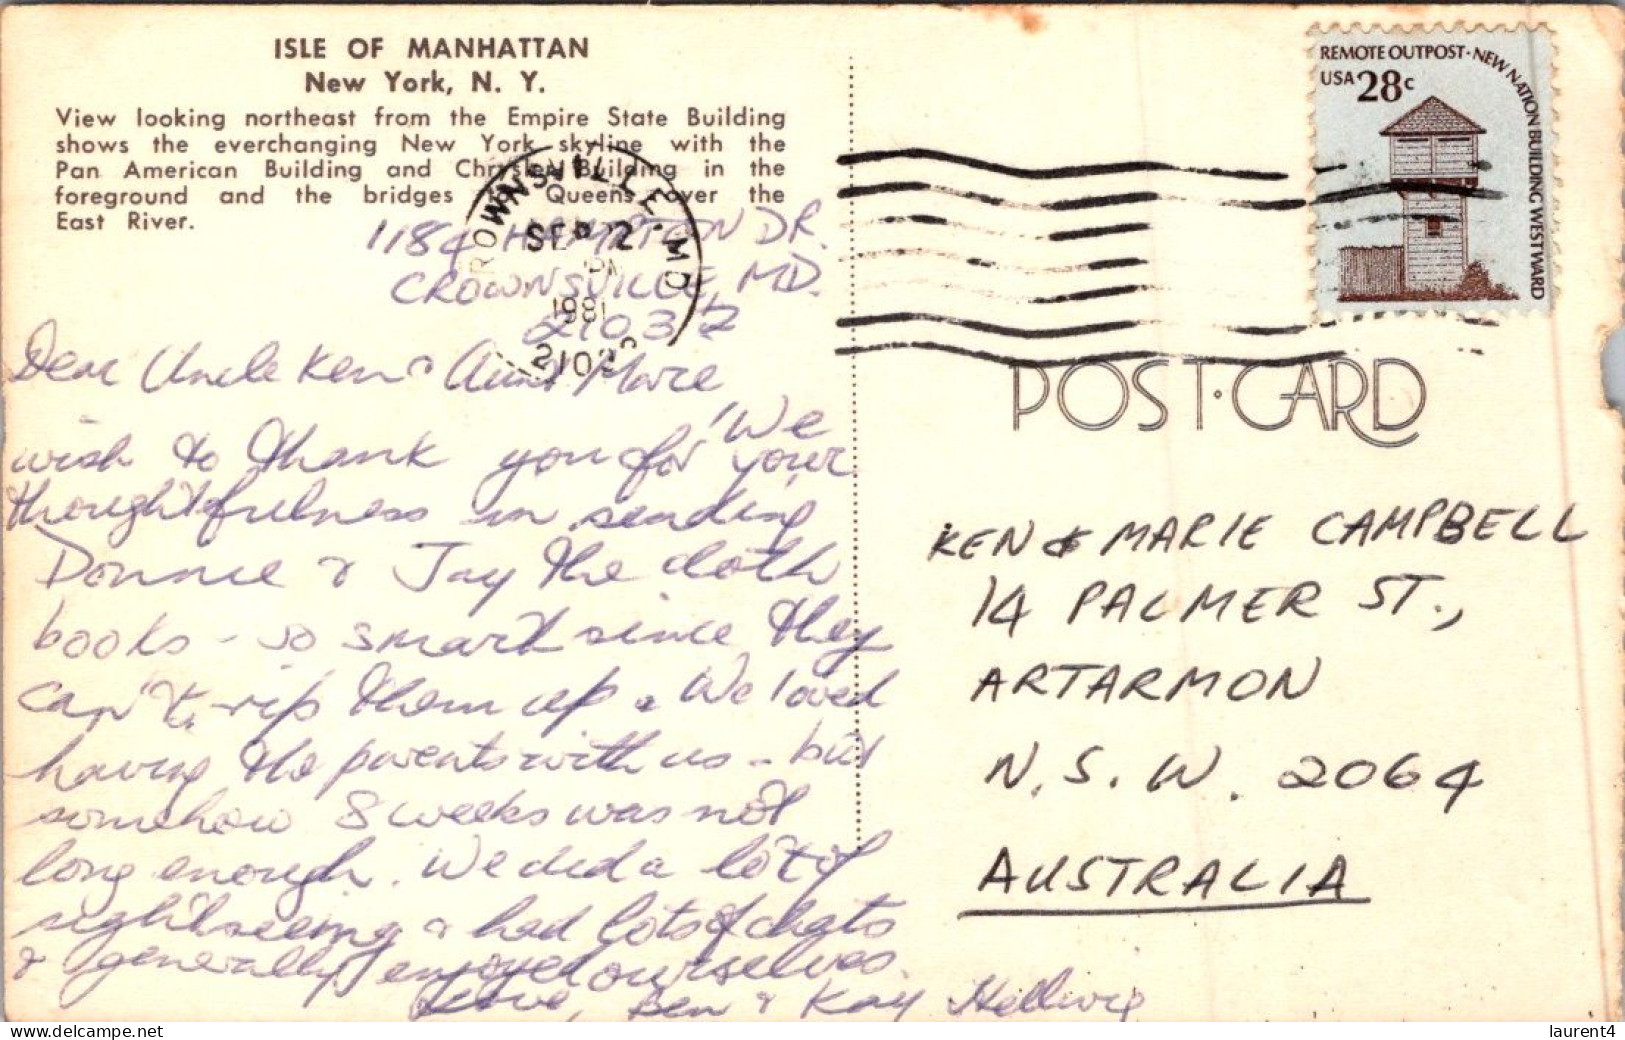 ISLE OF MANHATTAN
New York, N. Y.
View looking northeast from the Empire State Building
shows the everchanging New York skyline with the
Pan American Building and Chrysler Building in the
foreground and the bridges to Queens over the
East River.
1184 HAMPTON DR.
CROWNSVILLE, MD.
21032
Dear Uncle Ken & Aunt Marie
We
wish to thank you for your
thoughtfulness in sending
Donnie & Jay the cloth
books - so smart since they
can't rip them up. We loved
having the parents with us - but
somehow 8 weeks was not
long enough. We did a lot of
sightseeing & had lots of chats
& generally enjoyed ourselves.
Love, Ben & Kay Hellwig
CROWNSVILLE, MD
SEP 2
PM
1981
REMOTE OUTPOST · NEW NATION BUILDING WESTWARD
USA 28c
POST·CARD
KEN & MARIE CAMPBELL
14 PALMER ST.,
ARTARMON
N.S.W. 2064
AUSTRALIA
delcampe.net
laurent4